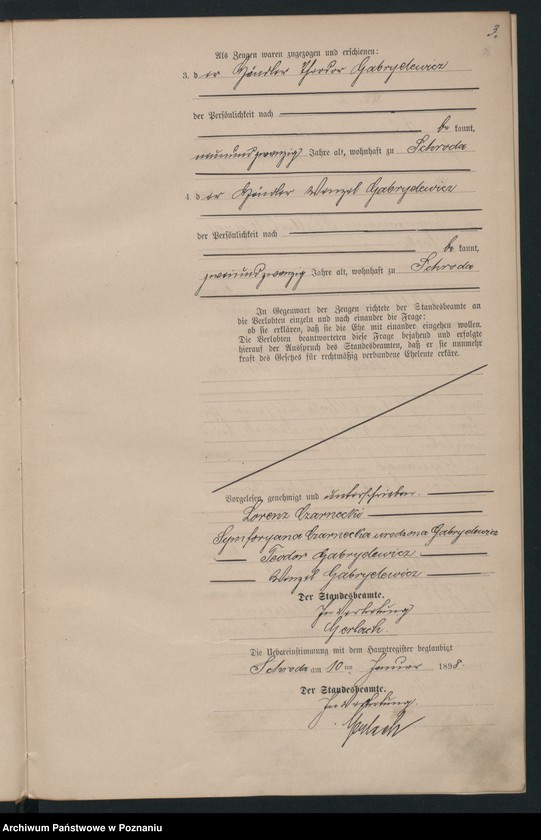 3.
Als Zeugen waren zugezogen und erschienen:
3. der Händler Theodor Gabryelewicz
der Persönlichkeit nach
be kannt,
neunundzwanzig Jahre alt, wohnhaft zu Schroda
4. der Händler Wenzel Gabryelewicz
der Persönlichkeit nach
be kannt,
zweiundzwanzig Jahre alt, wohnhaft zu Schroda
In Gegenwart der Zeugen richtete der Standesbeamte an
die Verlobten einzeln und nach einander die Frage:
ob sie erklären, daß sie die Ehe mit einander eingehen wollen.
Die Verlobten beantworteten diese Frage bejahend und erfolgte
hierauf der Ausspruch des Standesbeamten, daß er sie nunmehr
kraft des Gesetzes für rechtmäßig verbundene Eheleute erkläre.
Vorgelesen, genehmigt und unterschrieben.
Lorenz Czarnecki
Symforyana Czarnecka urodzona Gabryelewicz
Teodor Gabryelewicz
Wenzel Gabryelewicz
Der Standesbeamte.
In Vertretung
Gerlach.
Die Uebereinstimmung mit dem Hauptregister beglaubigt
Schroda am 10ten Januar 1898.
Der Standesbeamte.
In Vertretung.
Gerlach
Archiwum Państwowe w Poznaniu